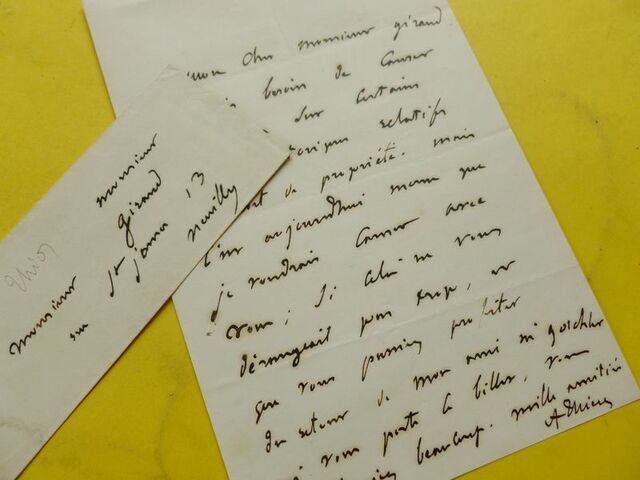 mon cher monsieur giraud
besoin de causer
sur certains
relatifs
de propriété. mais
c'est aujourdhui meme que
je voudrais causer avec
vous; si cela ne vous
dérangeait pas trop, et
que vous puissiez profiter
du retour de mon ami mr
qui vous porte ce billet, vous
beaucoup. mille amitiés
A Thiers
monsieur
giraud
st james 13
neuilly
monsieur
rue
Thiers